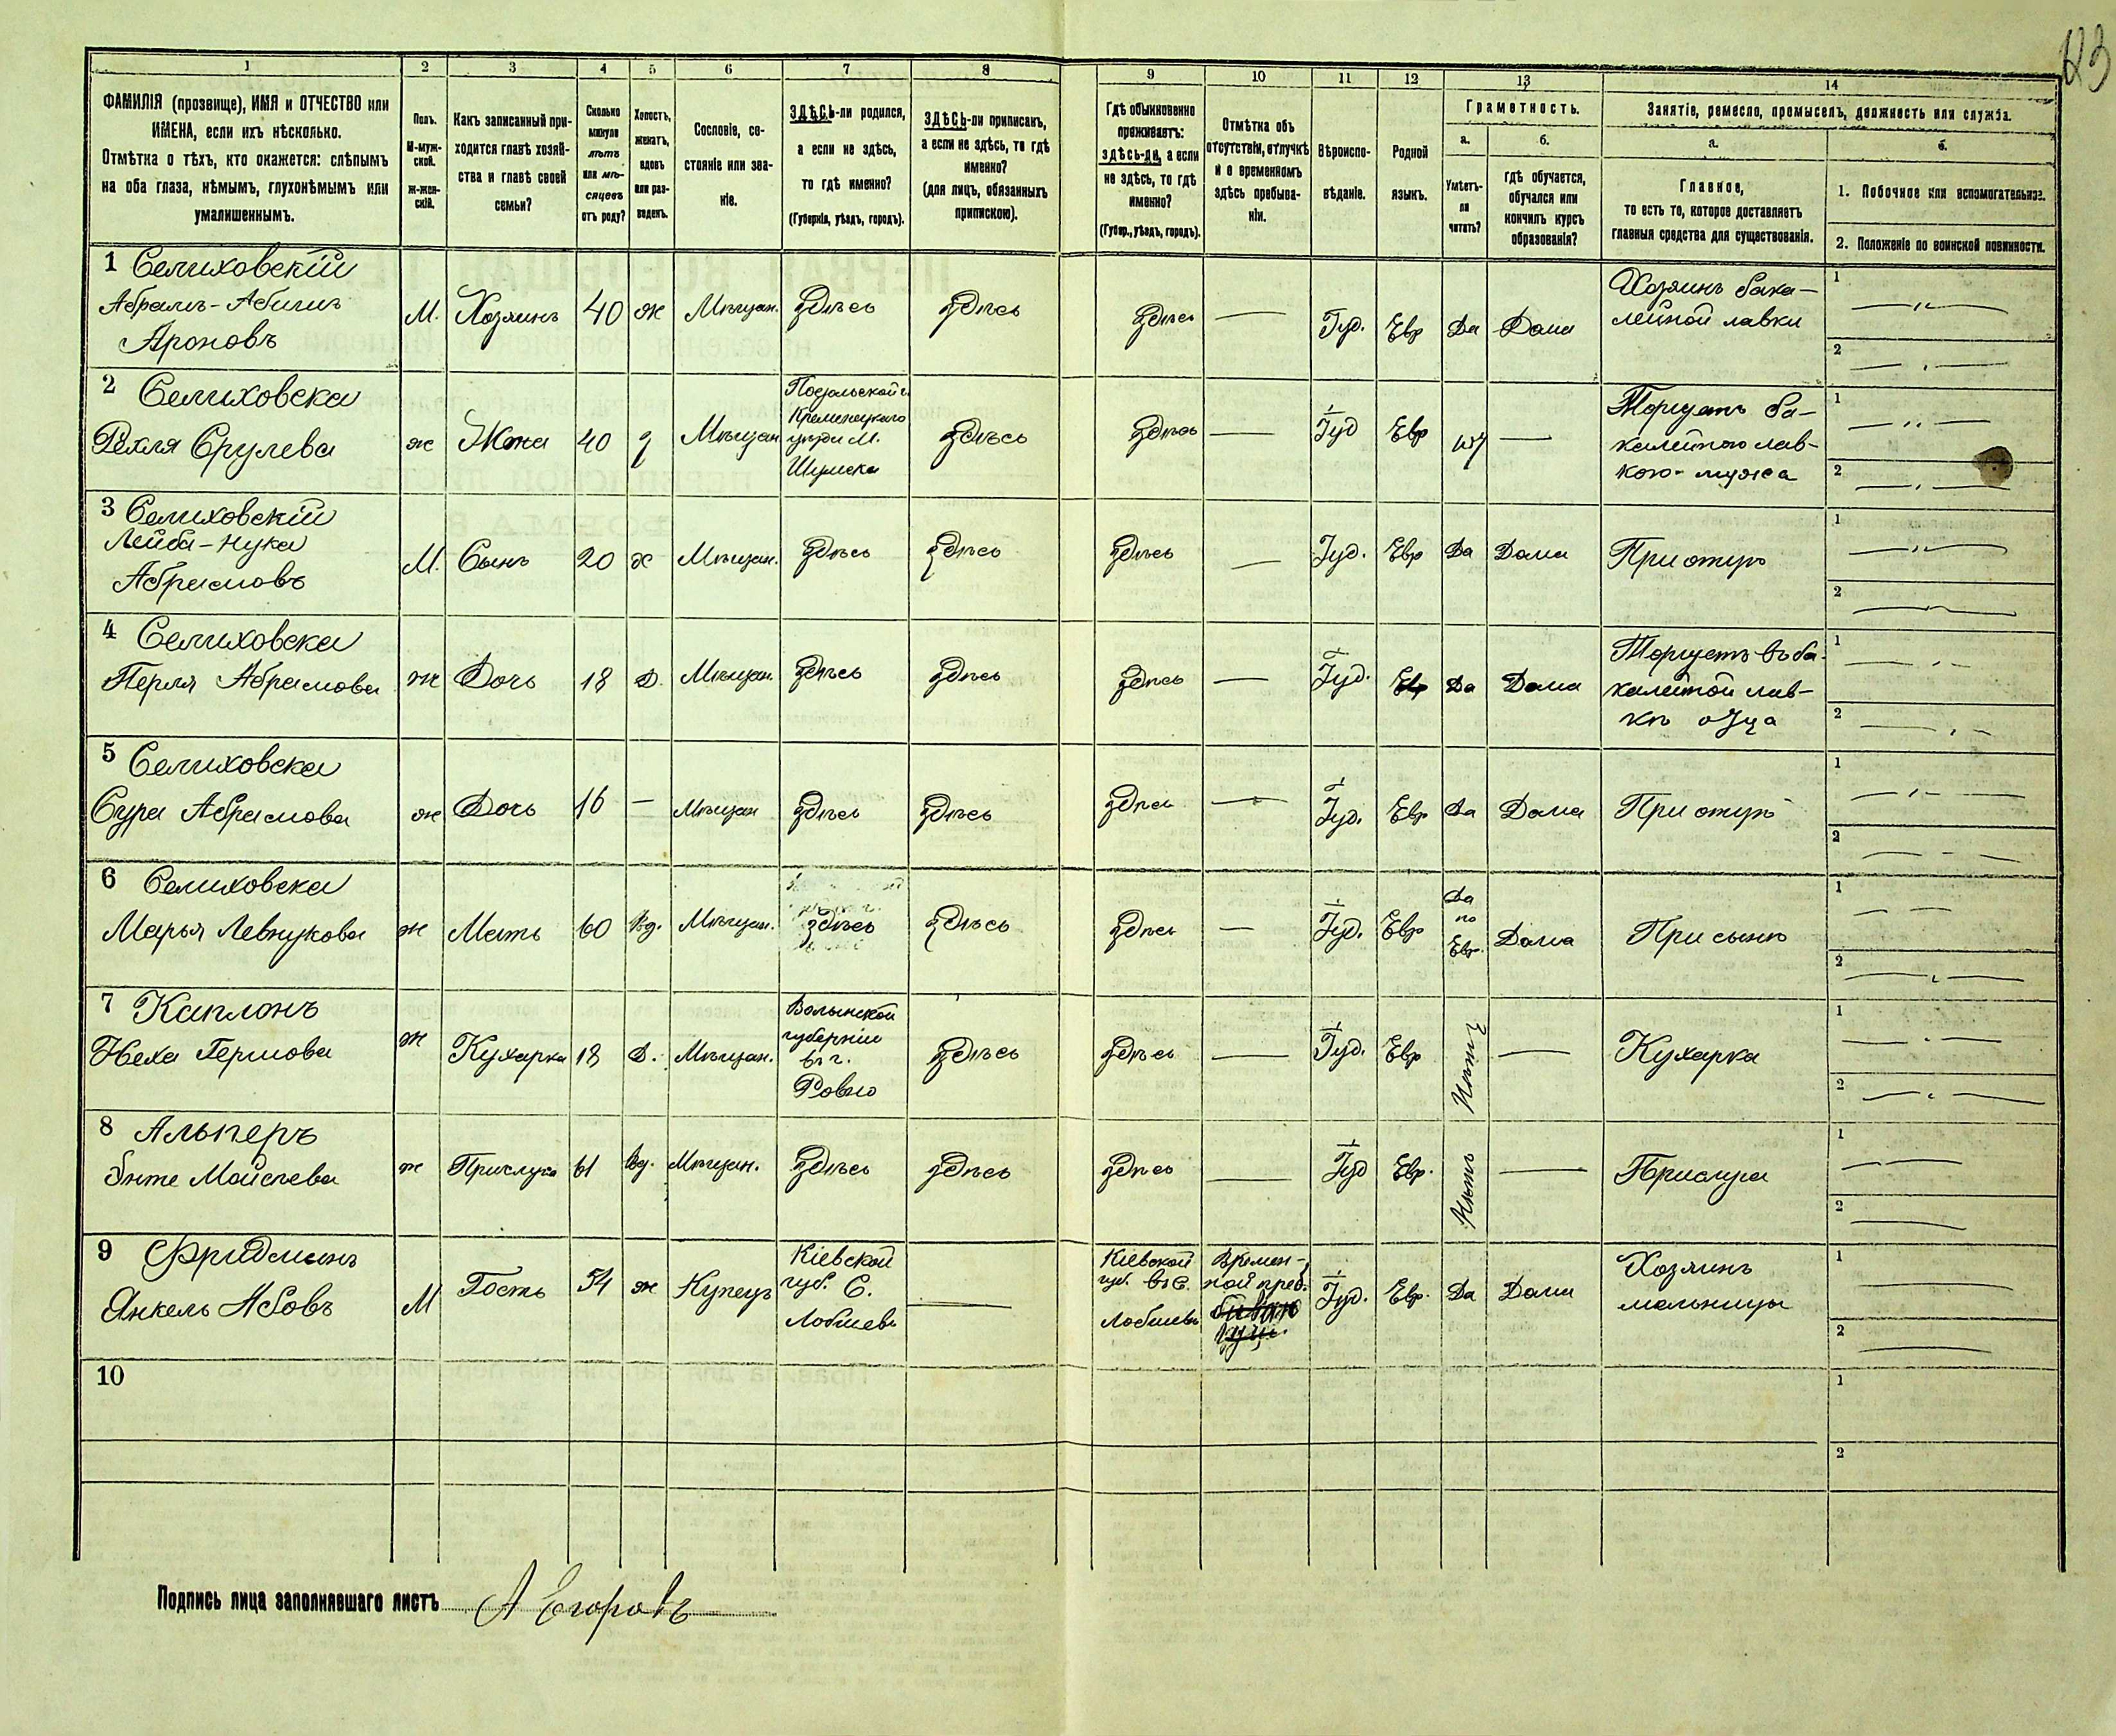 123
1 2 3 4 5 6 7 8 9 10 11 12 13 14
ФАМИЛІЯ (прозвище), ИМЯ и ОТЧЕСТВО или
ИМЕНА, если ихъ нѣсколько.
Отмѣтка о тѣхъ, кто окажется: слѣпымъ
на оба глаза, нѣмымъ, глухонѣмымъ или
умалишеннымъ.
Полъ.
М-муж-
ской.
Ж-жен-
скій.
Какъ записанный при-
ходится главѣ хозяй-
ства и главѣ своей
семьи?
Сколько
минуло
лѣтъ
или мѣ-
сяцевъ
отъ роду?
Холостъ,
женатъ,
вдовъ
или раз-
веденъ.
Сословіе, со-
стояніе или зва-
ніе.
ЗДѢСЬ-ли родился,
а если не здѣсь,
то гдѣ именно?
(Губернія, уѣздъ, городъ).
ЗДѢСЬ-ли приписанъ,
а если не здѣсь, то гдѣ
именно?
(для лицъ, обязанныхъ
припискою).
Гдѣ обыкновенно
проживаетъ:
здѣсь-ли, а если
не здѣсь, то гдѣ
именно?
(Губер., уѣздъ, городъ).
Отмѣтка объ
отсутствіи, отлучкѣ
и о временномъ
здѣсь пребыва-
ніи.
Вѣроиспо-
вѣданіе.
Родной
языкъ.
Грамотность.
а.
Умѣетъ-
ли
читать?
б.
гдѣ обучается,
обучался или
кончилъ курсъ
образованія?
Занятіе, ремесло, промыселъ, должность или служба.
а.
Главное,
то есть то, которое доставляетъ
главныя средства для существованія.
б.
1. Побочное или вспомогательное.
2. Положеніе по воинской повинности.
1 Селиховскій
Абрамъ-Абишъ
Ароновъ
М. Хозяинъ 40 ж Мѣщан. здѣсь здѣсь здѣсь — Іуд. Евр Да Дома
Хозяинъ бака-
лейной лавки
1
2
2 Селиховска
Рехля Срулева
ж Жена 40 з Мѣщан
Подольской г.
Кременецкаго
уѣзди М.
Шумска
здѣсь здѣсь — Іуд Евр —
Торгуетъ ба-
калейною лав-
кою - мужа
1
2
3 Селиховскій
Лейба-Нука
Абрамовъ
М. Сынъ 20 х Мѣщан. здѣсь здѣсь здѣсь — Іуд. Евр Да Дома При отцѣ
1
2
4 Селиховска
Перля Абрамова
ж Дочь 18 Д. Мѣщан здѣсь здѣсь здѣсь — Іуд. Евр Да Дома
Торгуетъ въ ба-
калейной лав-
кѣ отца
1
2
5 Селиховска
Сура Абрамова
ж Дочь 16 — Мѣщан здѣсь здѣсь здѣсь — Іуд. Евр Да Дома При отцѣ
1
2
6 Селиховска
Марья Левнукова
ж Мать 60 Вд. Мѣщан. здѣсь здѣсь здѣсь — Іуд. Евр
Да
по
Евр.
Дома При сынѣ
1
2
7 Каплонъ
Неха Гершова
ж Кухарка 18 Д. Мѣщан.
Волынской
губерніи
въ г.
Ровно
здѣсь здѣсь — Іуд. Евр Нѣтъ — Кухарка
1
2
8 Альперъ
Энте Мойсеева
ж Прислуга 61 Вд. Мѣщан. здѣсь здѣсь здѣсь — Іуд Евр. Нѣтъ — Прислуга
1
2
9 Фридманъ
Янкель Абовъ
М Гость 54 ж Купецъ
Кіевской
губ. С.
—
Кіевской
губ. въ с.
Времен-
ной преб.
Іуд. Евр. Да Дома
Хозяинъ
мельницы
1
2
10
1
2
Подпись лица заполнявшаго листъ А Егоровъ